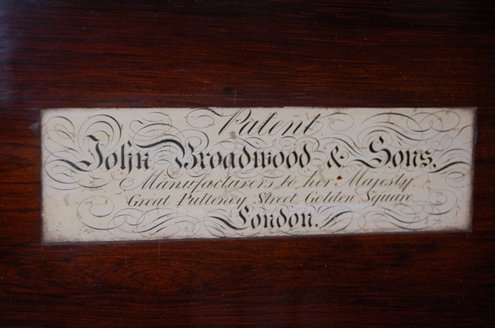 Patent
John Broadwood & Sons,
Manufacturers to her Majesty.
Great Pulteney Street Golden Square
London.